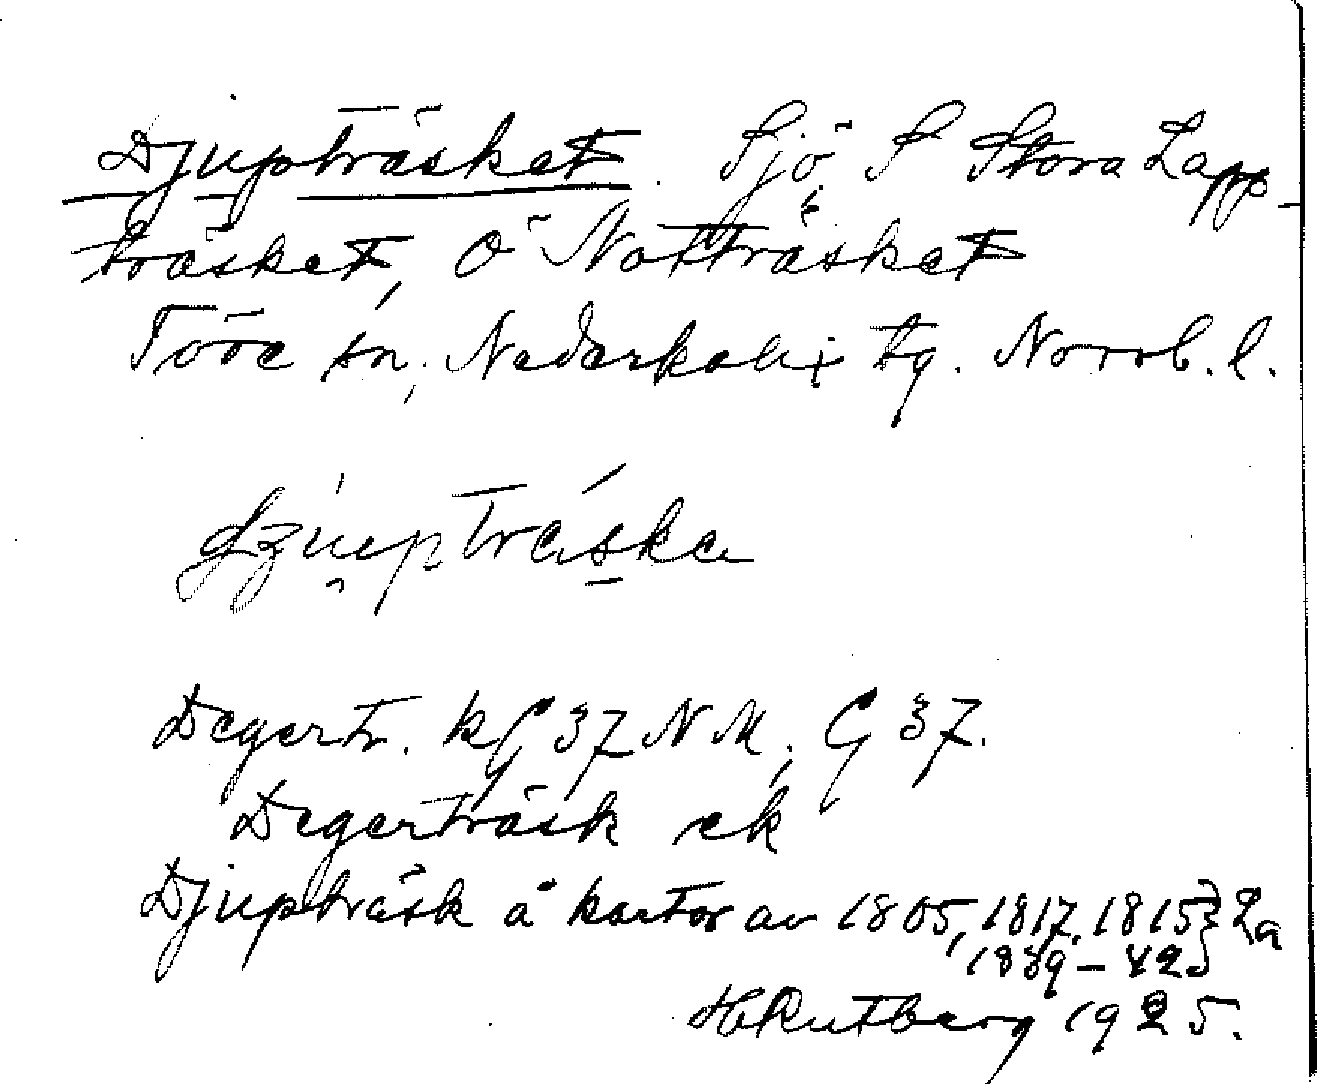 Djupträsket. Sjö S Stora Lapp-
träsket, Ö Nötträsket
Töre sn, Nederkalix tg. Norrb. l.
Degertr. kG 37 NM, G 37.
Degerträsk ek
Djupträsk å kartor av 1805, 1817, 1815 } La
1839-42
H Rutberg 1925.